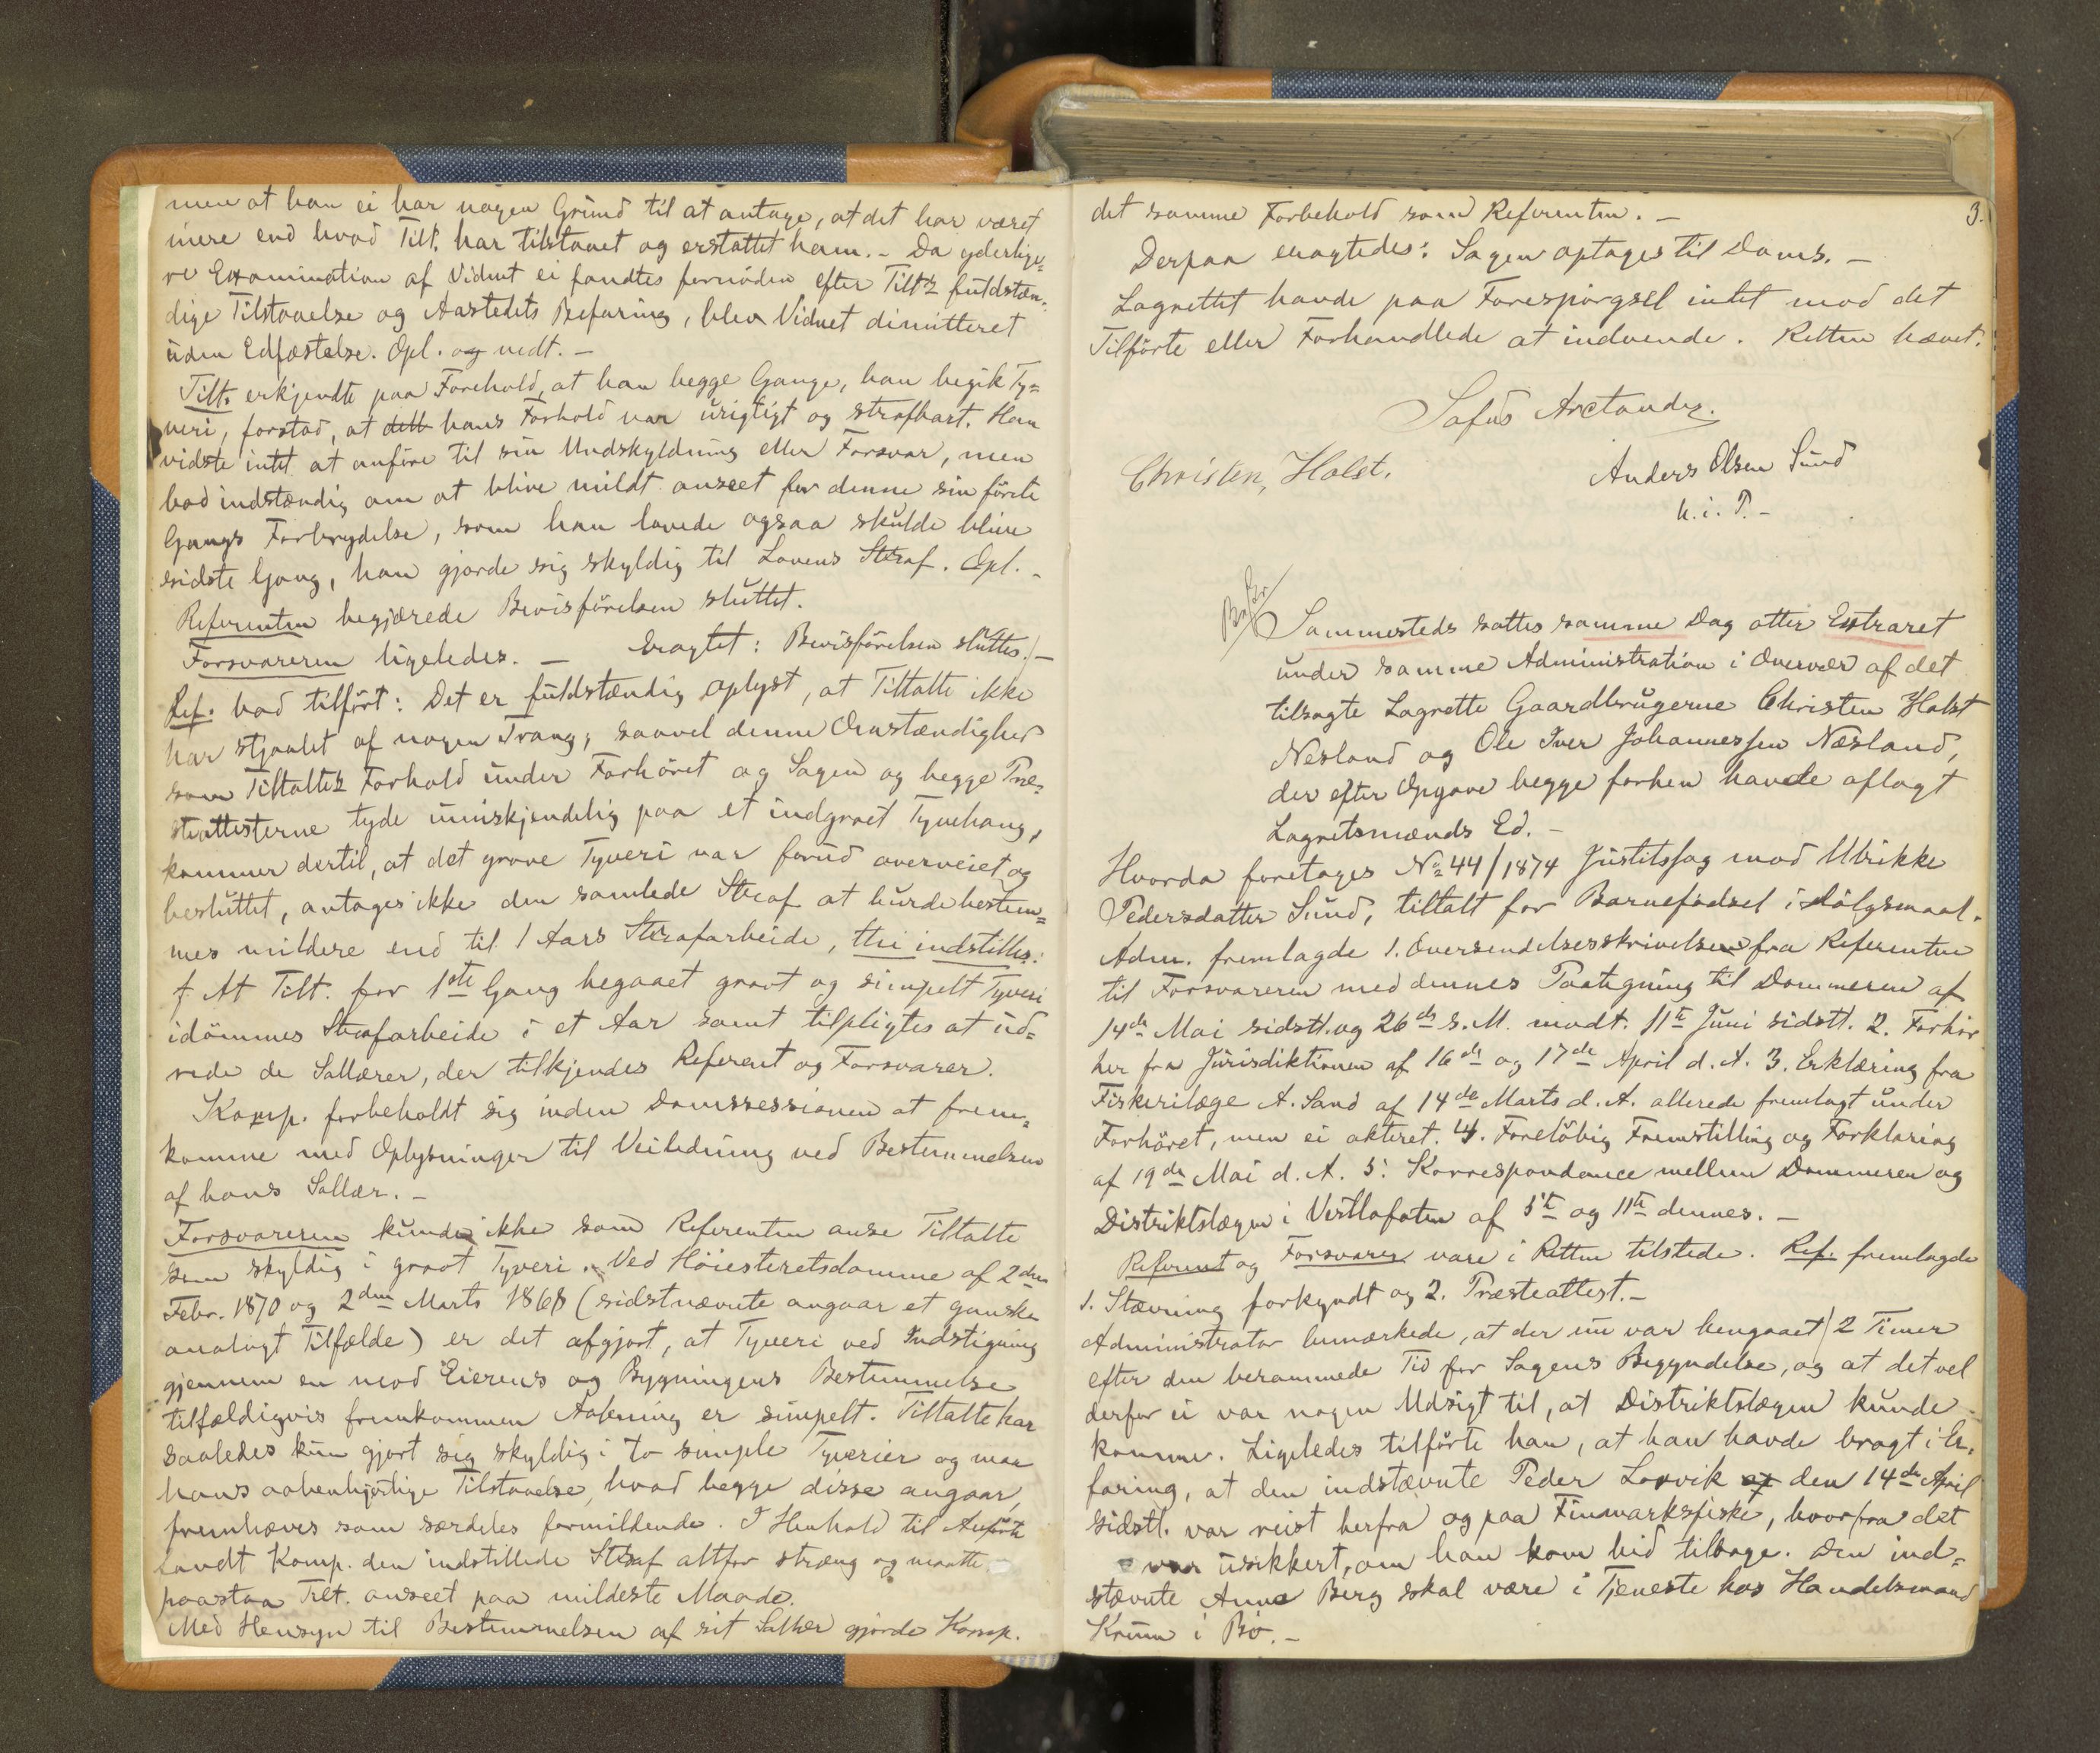 men at han ei har nogen Grund til at antage, at det har været
mere end hvad Tilt. har tilstaaet og erstattet ham. - Da yderlige=
re Examination af Vidnet ei fandtes fornöden efter Tilts fuldstæn=
dige Tilstaaelse og Aastedets Befaring, blev Vidnet dimitteret
uden Edfæstelse. Opl. og vedt. -
Tilt. erkjendte paa Forehold, at han begge Gange, han begik Ty=
veri, forstod, at dett hans Forhold var urigtigt og strafbart. Han
vidste intet at anföre til sin Undskyldning eller Forsvar, men
bad indstændig om at blive mildt anseet for denne sin förste
Gangs Forbrydelse, som han lovede ogsaa skulde blive
sidste Gang, han gjorde sig skyldig til Lovens Straf. Opl. -
Referenten begjærede Bevisförelsen sluttet.
Forsvareren ligeledes. - Eragtet: Bevisförelsen sluttes. -
Ref. bad tilfört: Det er fuldstændig oplyst, at Tiltalte ikke
har stjaalet af nogen Trang; saavel denne Omstændighed
som Tiltaltes Forhold under Forhöret og Sagen og begge Præ=
steattesterne tyde umiskjendelig paa et indgroet Tyvehang,
kommer dertil, at det grove Tyveri var forud overveiet og
besluttet, antages ikke den samlede Straf at burde bestem=
mes mildere end til 1 Aars Strafarbeide, thi indstilles:
At Tilt. for 1ste Gang begaaet grovt og simpelt Tyveri
idömmes Strafarbeide i et Aar samt tilpligtes at ud=
rede de Sallærer, der tilkjendes Referent og Forsvarer.
Komp. forbeholdt sig inden Domssessionen at frem=
komme med Oplysninger til Veiledning ved Bestemmelsen
af hans Sallær. -
Forsvareren kunde ikke som Referenten anse Tiltalte
som skyldig i grovt Tyveri. Ved Höiesteretsdomme af 2den
Febr. 1870 og 2den Marts 1868 (sidstnævnte angaar et ganske
analogt Tilfælde) er det afgjort, at Tyveri ved Indstigning
gjennem en mod Eierens og Bygningens Bestemmelse
tilfældigvis fremkommen Aabning er simpelt. Tiltalte har
saaledes kun gjort sig skyldig i to simple Tyverier og maa
hans aabenhjertige Tilstaaelse, hvad begge disse angaar,
fremhæves som særdeles formildende. I Henhold til Anförte
fandt Komp. den indstillede Straf altfor streng og maatte
paastaa Tilt. anseet paa mildeste Maade.
Med Hensyn til Bestemmelsen af sit Sallær gjorde Komp.
3.
det samme Forbehold som Referenten. -
Derpaa eragtedes: Sagen optages til Doms. -
Lagrettet havde paa Forespörgsel intet mod det
Tilförte eller Forhandlede at indvende. Retten hævet.
Sofus Arctander.
Christen, Holst.
Anders Olsen Sund
m. i. P. -
Sammesteds sattes samme Dag atter Extraret
under samme Administration i Overvær af det
tilsagte Lagrette Gaardbrugerne Christen Holst
Nesland og Ole Iver Johannessen Næsland,
der efter Opgave begge forhen havde aflagt
Lagretsmænds Ed. -
Hvorda foretages No 44/1874 Justitssag mod Ulrikke
Pedersdatter Sund, tiltalt for Barnefödsel i Dölgsmaal.
Adm. fremlagde 1. Oversendelsesskrivelse fra Referenten
til Forsvareren med dennes Paategning til Dommeren af
14de Mai sidstl. og 26de s. M. modt. 11te Juni sidstl. 2. Forhör
her fra Jurisdiktionen af 16de og 17de April d. A. 3. Erklæring fra
Fiskerilæge A. Sand af 14de Marts d. A. allerede fremlagt under
Forhöret, men ei akteret. 4. Forelöbig Fremstilling og Forklaring
af 19de Mai d. A. 5. Korrespondance mellem Dommeren og
Distriktslægen i Vestlofoten af 5te og 11te dennes. -
Referent og Forsvarer vare i Retten tilstede. Ref. fremlagde
1. Stævning forkyndt og 2. Præsteattest. -
Administrator bemærkede, at der nu var hengaaet 2 Timer
efter den berammede Tid for Sagens Begyndelse, og at det vel
derfor ei var nogen Udsigt til, at Distriktslægen kunde
komme. Ligeledes tilförte han, at han havde bragt i Er=
faring, at den indstævnte Peder Lorvik den 14de April
sidstl. var reist herfra og paa Finmarksfiske, hvorfra det
var usikkert, om han kom hid tilbage. Den ind=
stævnte Anne Berg skal være i Tjeneste hos Handelsmand
Krum i Bö. -